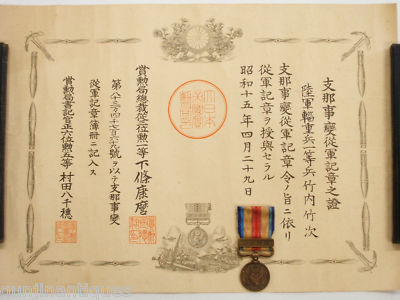 支那事變從軍記章之證
陸軍輜重兵一等兵 竹内竹次
支那事變從軍記章令ノ旨ニ依リ
從軍記章ヲ授與セラル
昭和十五年四月二十九日
大日本
賞勲局總裁從三位勲一等下條康麿
號ヲ以テ支那事變
從軍記章簿冊ニ記入ス
賞勲局書記官正六位勲五等村田八千穂
gunjinantiques